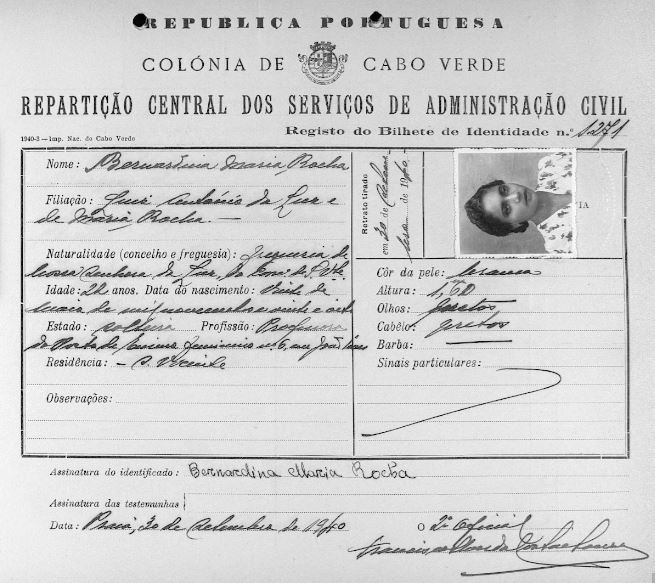 REPUBLICA PORTUGUESA
COLÓNIA DE CABO VERDE
REPARTIÇÃO CENTRAL DOS SERVIÇOS DE ADMINISTRAÇÃO CIVIL
1940-3—Imp. Nac. de Cabo Verde
Registo do Bilhete de Identidade n.º 1271
Nome: Bernardina Maria Rocha
Filiação: Luiz António da Luz e
de Maria Rocha.—
Naturalidade (concelho e freguesia): freguesia de
Nossa Senhora da Luz, do Conc. de S. Vte
Idade: 22 anos. Data do nascimento: Vinte de
Maio de mil novecentos e vinte e oito
Estado: solteira Profissão: Professora
do Posto de Ensino feminino nº 6, em João
Residência: — S. Vicente
Observações:
Retrato tirado
em 30 de de 1940
Côr da pele: branca
Altura: 1,60
Olhos: pretos
Cabêlo: pretos
Barba: —
Sinais particulares:
Assinatura do identificado: Bernardina Maria Rocha
Assinatura das testemunhas
Data: Praia, 30 de Setembro de 1940
O 2º Oficial
Francisco